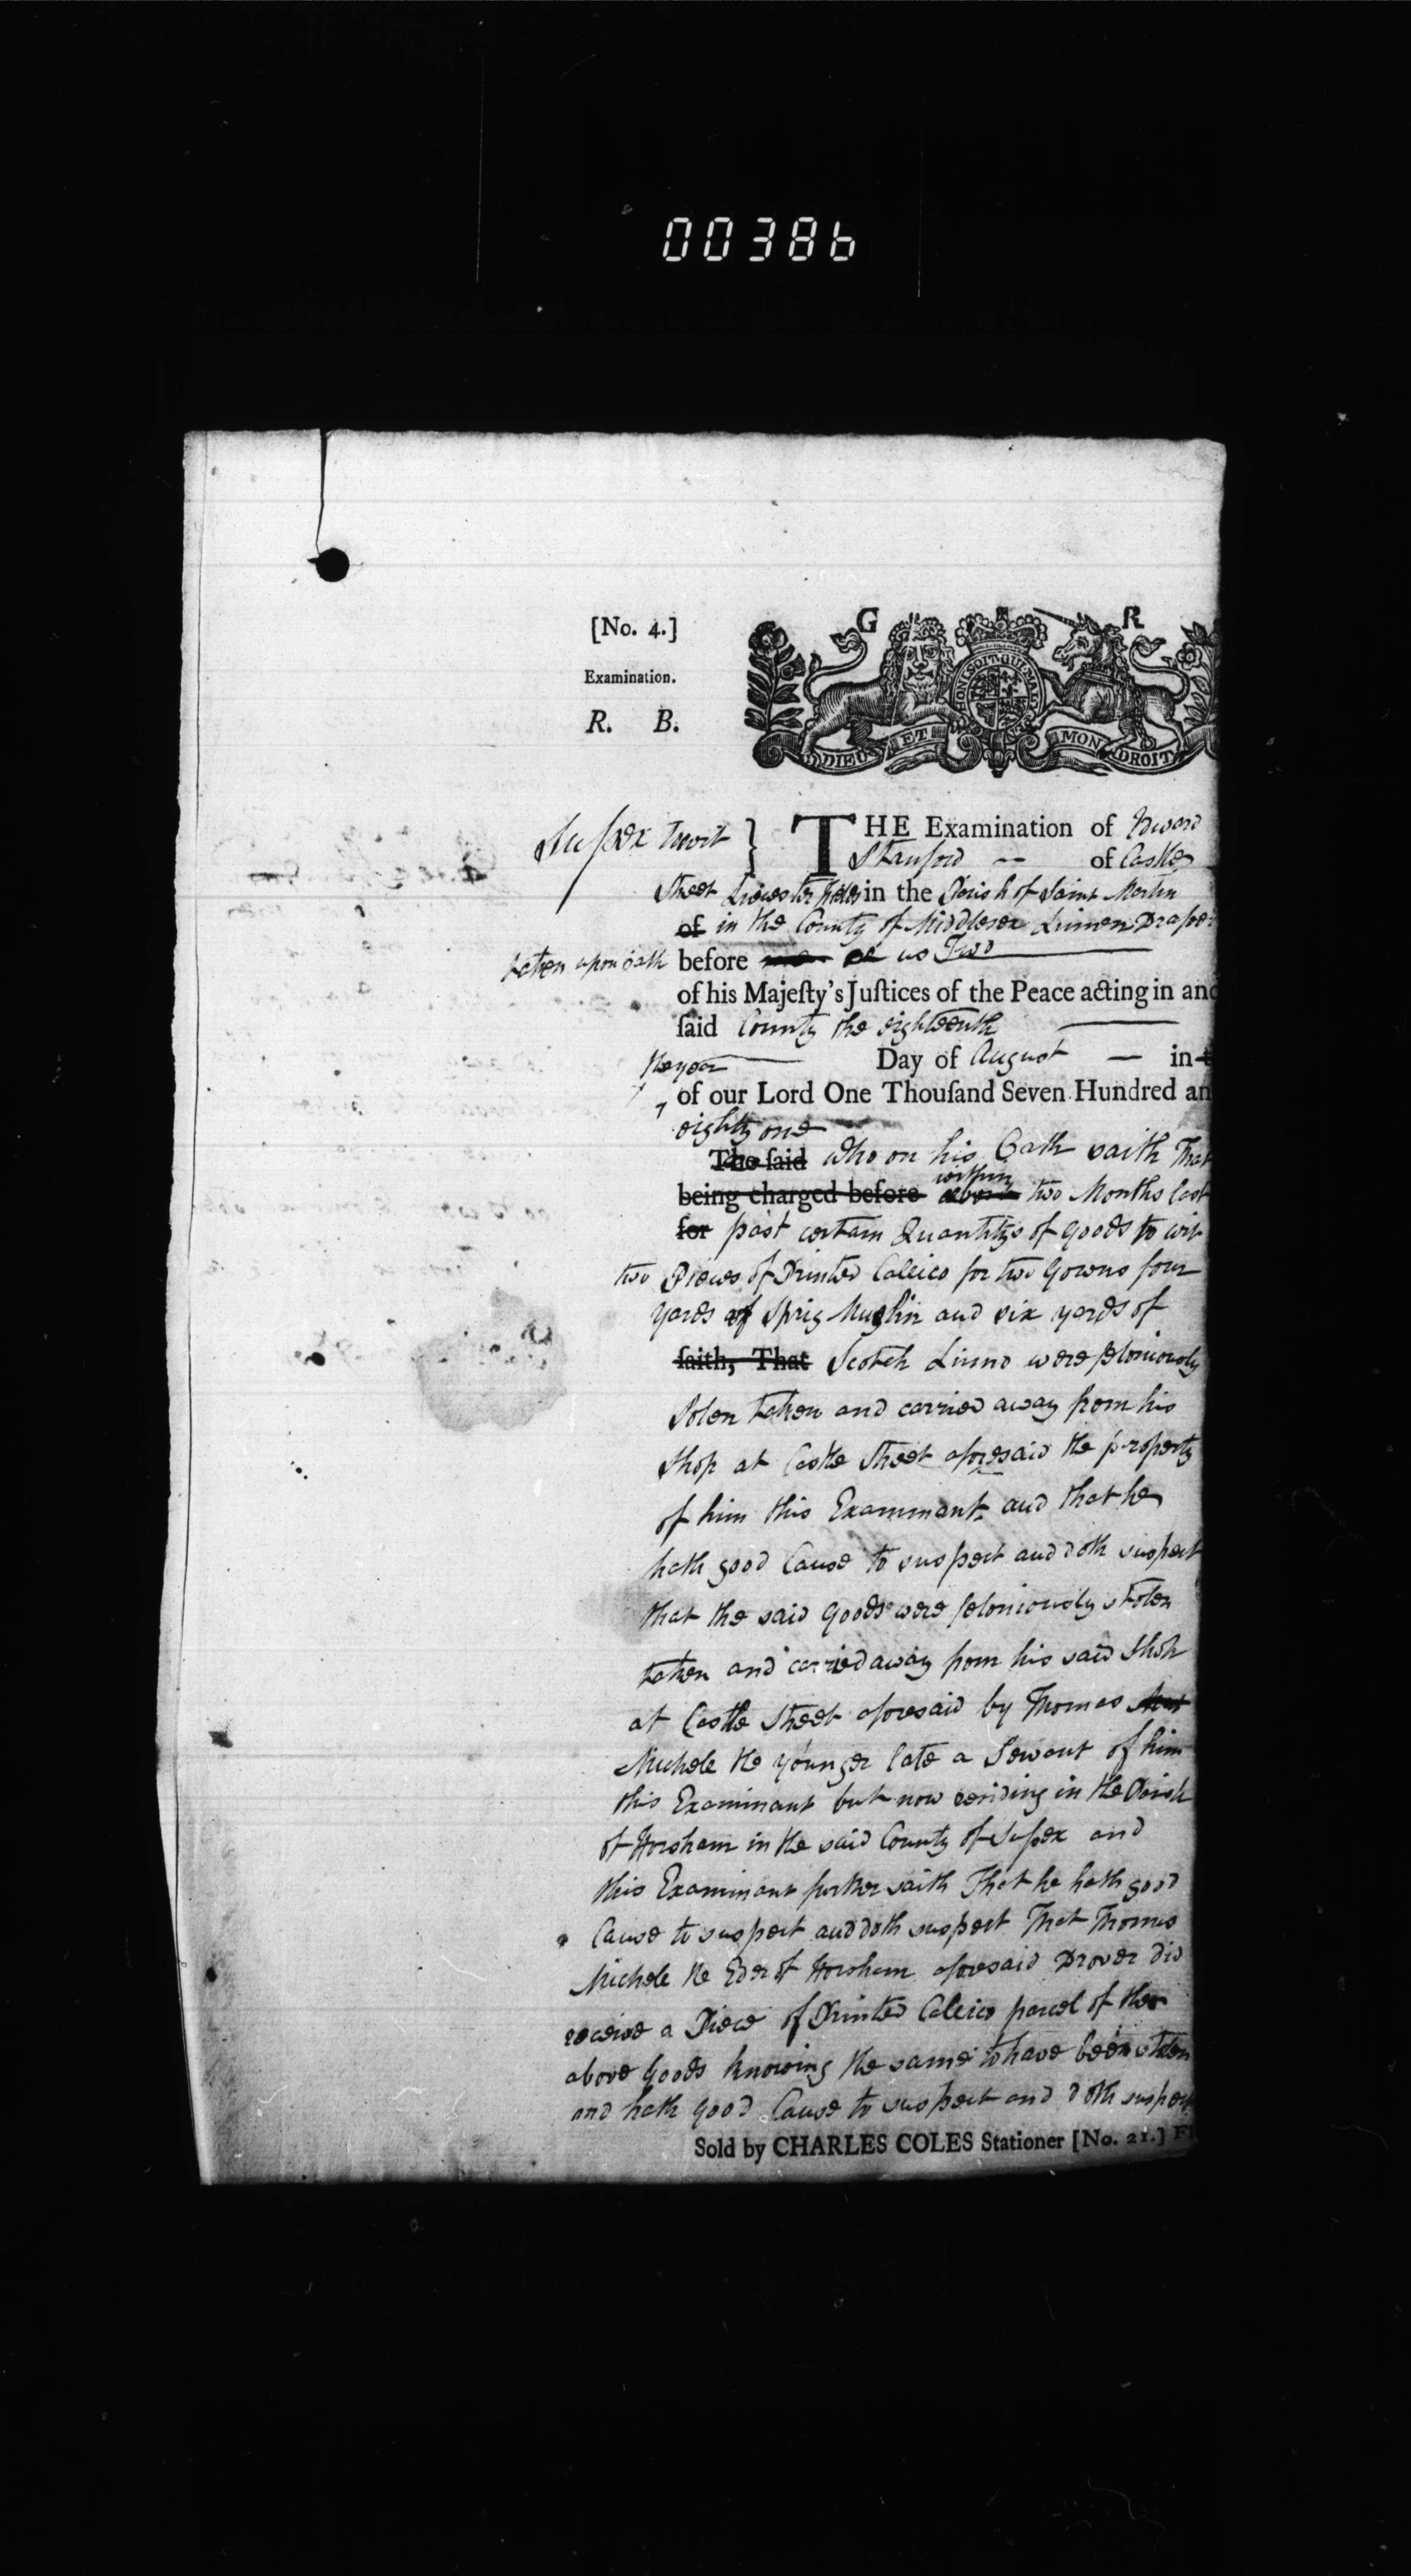 00386
[No. 4.]
Examination.
R. B.
G R
HONI SOIT QUI MAL
DIEU ET MON DROIT
Sussex towit } THE Examination of Edward
Stanford -- of Castle
Street Liecester fields in the Parish of Saint Martin
of in the County of Middlesex Linnen Draper
taken upon oath before me or us Two
of his Majeſty's Juſtices of the Peace acting in and
ſaid County the eighteenth
Day of August — in t
the year
of our Lord One Thouſand Seven Hundred an
eighty one
The ſaid who on his Oath saith That
within
being charged before about two Months last
for past certain Quantitys of goods to wit
two Pieces of Printed Callico for two Gowns four
yards of Sprig Muslin and six yards of
ſaith, That Scotch Linnd were feloniously
Solen taken and carried away from his
Shop at Castle Street aforesaid the property
of him this Examinant and that he
hath good Cause to suspect and doth suspect
that the said Goods were feloniously stolen
taken and carried away from his said Shop
at Castle Street aforesaid by Thomas
Michele the younger late a Servant of him
this Examinant but now residing in the Parish
of Horsham in the said County of Sussex and
this Examinant further saith That he hath good
Cause to suspect and doth suspect That Thomas
Michele the Eder of Horsham aforesaid Drover did
receive a Piece of Printed Callico parcel of the
above Goods knowing the same to have been stolen
and hath good Cause to suspect and doth suspect
Sold by CHARLES COLES Stationer [No. 21.] Fl